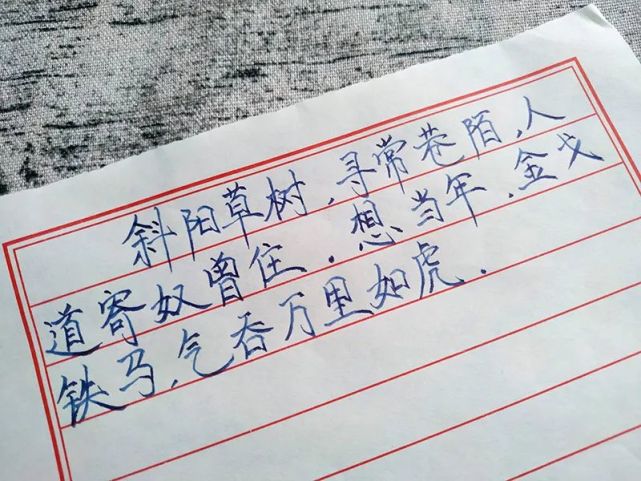 斜阳草树，寻常巷陌，人
道寄奴曾住．想当年，金戈
铁马，气吞万里如虎．